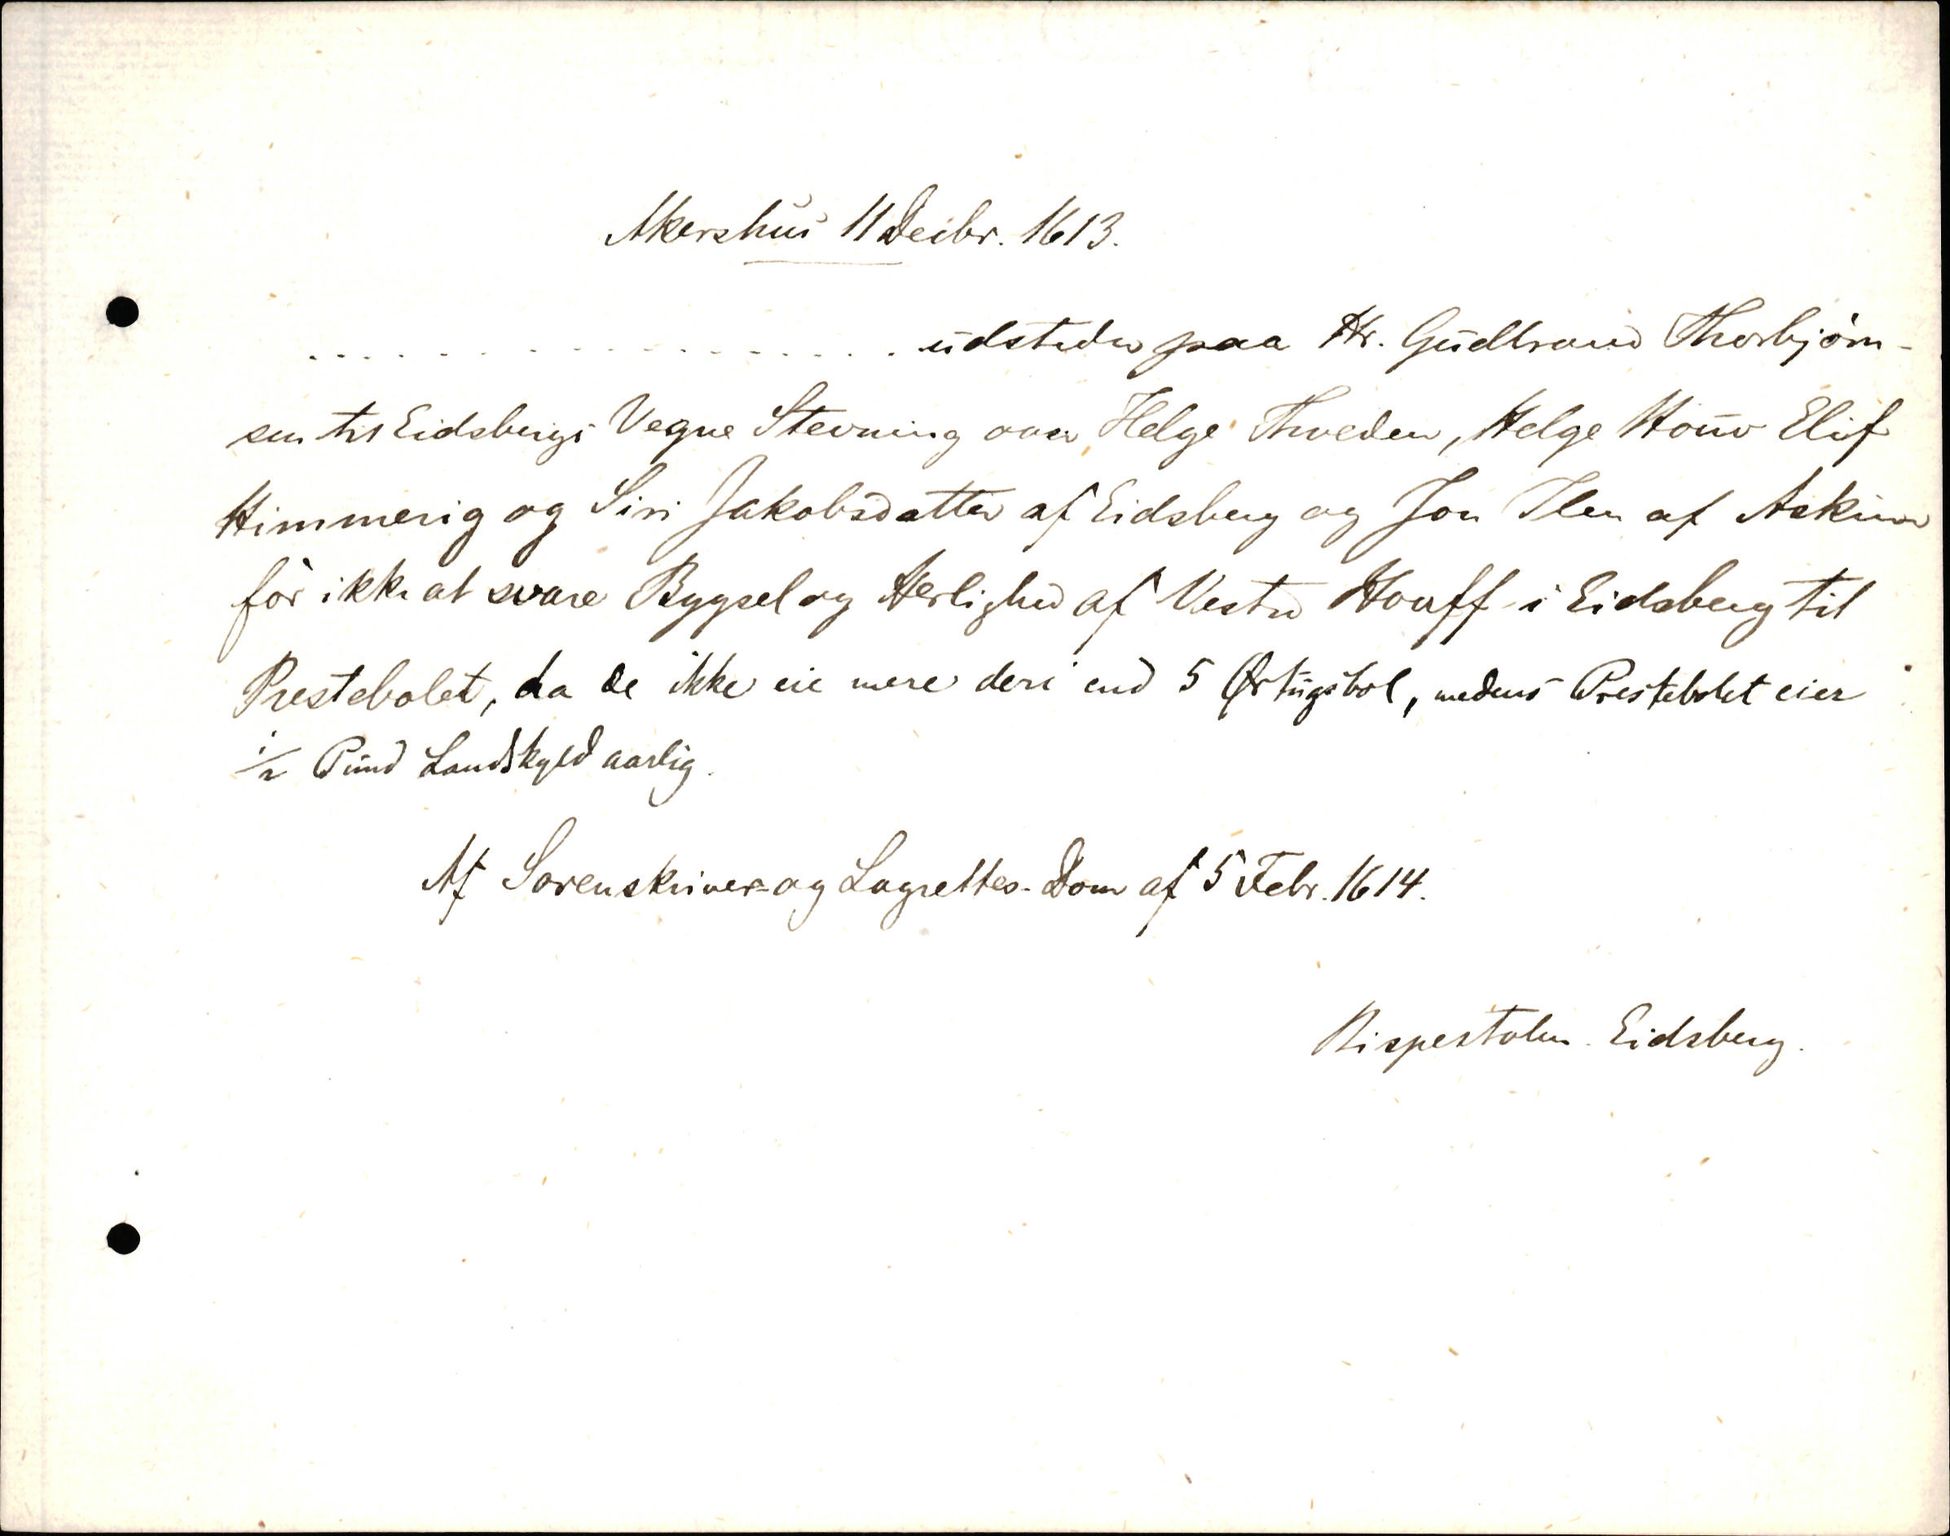 Akershus 11 Decbr. 1613.
. . . . . . . . . . . . . . . udsteder paa Hr. Gudbrand Thorbjörn-
sen til Eidsbergs Vegne Stevning over Helge Thveden, Helge Houv Elif
Himmerig og Siri Jakobsdatter af Eidsberg og Jon Ilen af Askim
for ikke at svare Bygsel og Herlighed af Vestre Houff i Eidsberg til
Prestebolet, da de ikke eie mere deri end 5 Örtugsbol, medens Prestebolet eier
1/2 Pund Landskyld aarlig.
Af Sorenskriver- og Lagrettes-Dom af 5 Febr. 1614.
Bispestolen. Eidsberg.